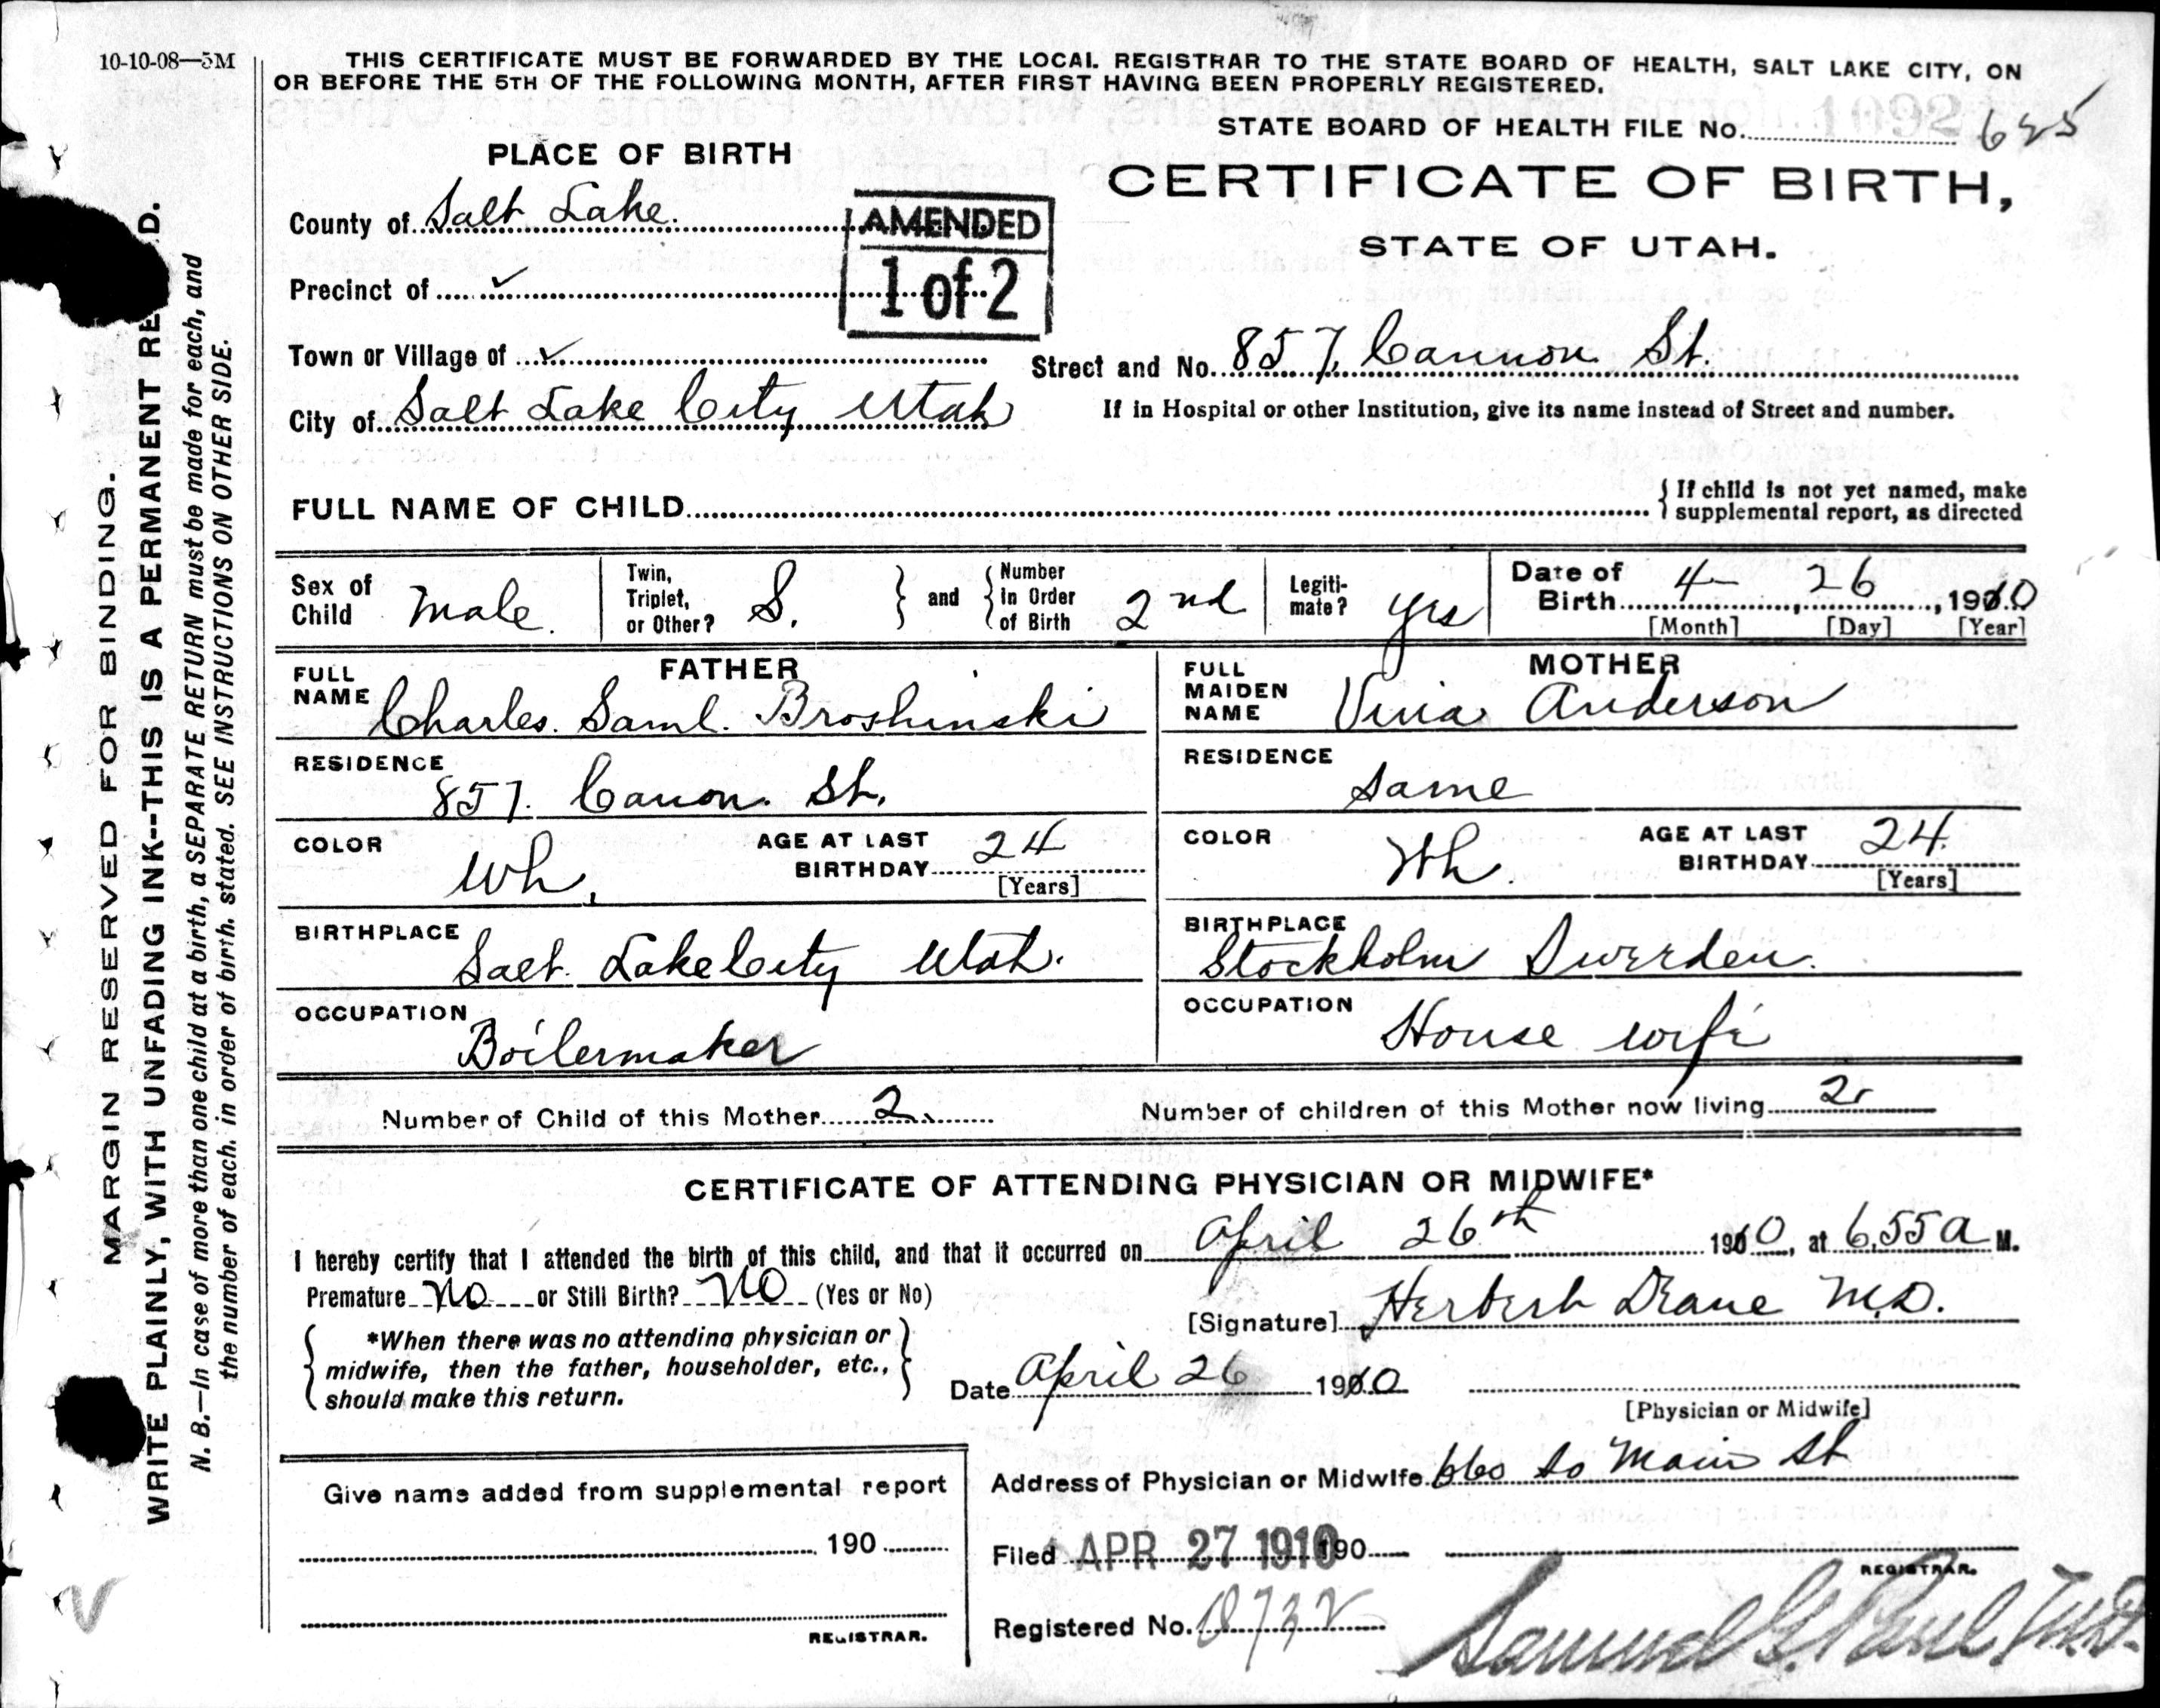 10-10-08—5M
THIS CERTIFICATE MUST BE FORWARDED BY THE LOCAL REGISTRAR TO THE STATE BOARD OF HEALTH, SALT LAKE CITY, ON
OR BEFORE THE 5TH OF THE FOLLOWING MONTH, AFTER FIRST HAVING BEEN PROPERLY REGISTERED.
STATE BOARD OF HEALTH FILE No. 1092 625
PLACE OF BIRTH
CERTIFICATE OF BIRTH,
STATE OF UTAH.
County of Salt Lake.
AMENDED
1 of 2
Precinct of ✓
Town or Village of ✓
Street and No. 857 Cannon St.
City of Salt Lake City Utah
If in Hospital or other Institution, give its name instead of Street and number.
FULL NAME OF CHILD
{ If child is not yet named, make
supplemental report, as directed
Sex of Child Male.
Twin, Triplet, or Other? S.
and
Number In Order of Birth 2nd
Legiti-mate? yes
Date of Birth 4 - 26, 1910
[Month] [Day] [Year]
FATHER
FULL NAME Charles. Saml. Broshinski
MOTHER
FULL MAIDEN NAME Vina Anderson
RESIDENCE 857. Canon. St.
RESIDENCE same
COLOR Wh.
AGE AT LAST BIRTHDAY 24
[Years]
COLOR Wh.
AGE AT LAST BIRTHDAY 24.
[Years]
BIRTHPLACE Salt Lake City Utah.
BIRTHPLACE Stockholm Sweeden.
OCCUPATION Boilermaker
OCCUPATION House wife
Number of Child of this Mother 2.
Number of children of this Mother now living 2
CERTIFICATE OF ATTENDING PHYSICIAN OR MIDWIFE*
I hereby certify that I attended the birth of this child, and that it occurred on April 26th 1910, at 6.55 a M.
Premature No or Still Birth? No (Yes or No)
[Signature] Herbert Deane M.D.
{ *When there was no attending physician or
midwife, then the father, householder, etc.,
should make this return. }
Date April 26 1910
[Physician or Midwife]
Address of Physician or Midwife 660 So Main St
Give name added from supplemental report
190
REGISTRAR.
Filed APR 27 1910 190
REGISTRAR.
Registered No. 18732
Samuel G. Paul, M.D.
MARGIN RESERVED FOR BINDING.
WRITE PLAINLY, WITH UNFADING INK--THIS IS A PERMANENT RE D.
N. B.—In case of more than one child at a birth, a SEPARATE RETURN must be made for each, and
the number of each. in order of birth. stated. SEE INSTRUCTIONS ON OTHER SIDE.